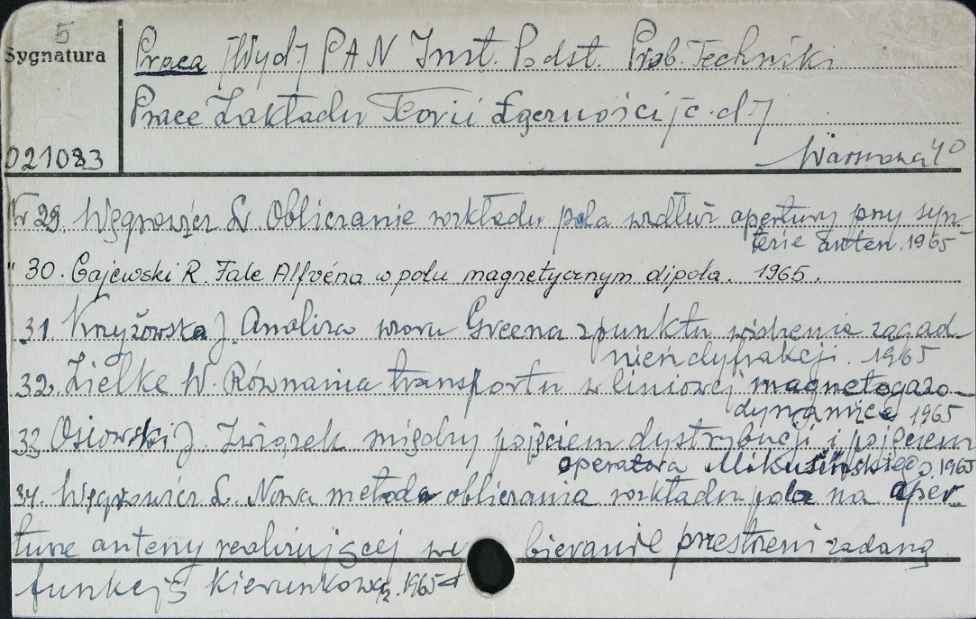 5
Sygnatura
021083
Praca [Wyd.] PAN Inst. Podst. Prob. Techniki
Prace Zakładu Teorii [c.d.]
Warszawa 40
Nr 29. Węgrowicz L. Obliczanie rozkładu pola wzdłuż apertury przy syn-
tezie anten. 1965
" 30. Gajewski R. Fale Alfvéna w polu magnetycznym dipola. 1965.
31. Krzyżowska J. Analiza wzoru Greena z punktu widzenia zagad
nień dyfrakcji. 1965
32. Zielke W. Równania transportu w liniowej magnetogazo-
dynamice 1965
33 Osiowski J. Związek między pojęciem dystrybucji i pojęciem
operatora Mikusińskiego, 1965
34. Węgrowicz L. Nowa metoda obliczania rozkładu pola na aper-
turze anteny realizującej w bieranie przestrzeni zadaną
funkcję kierunkową. 1965